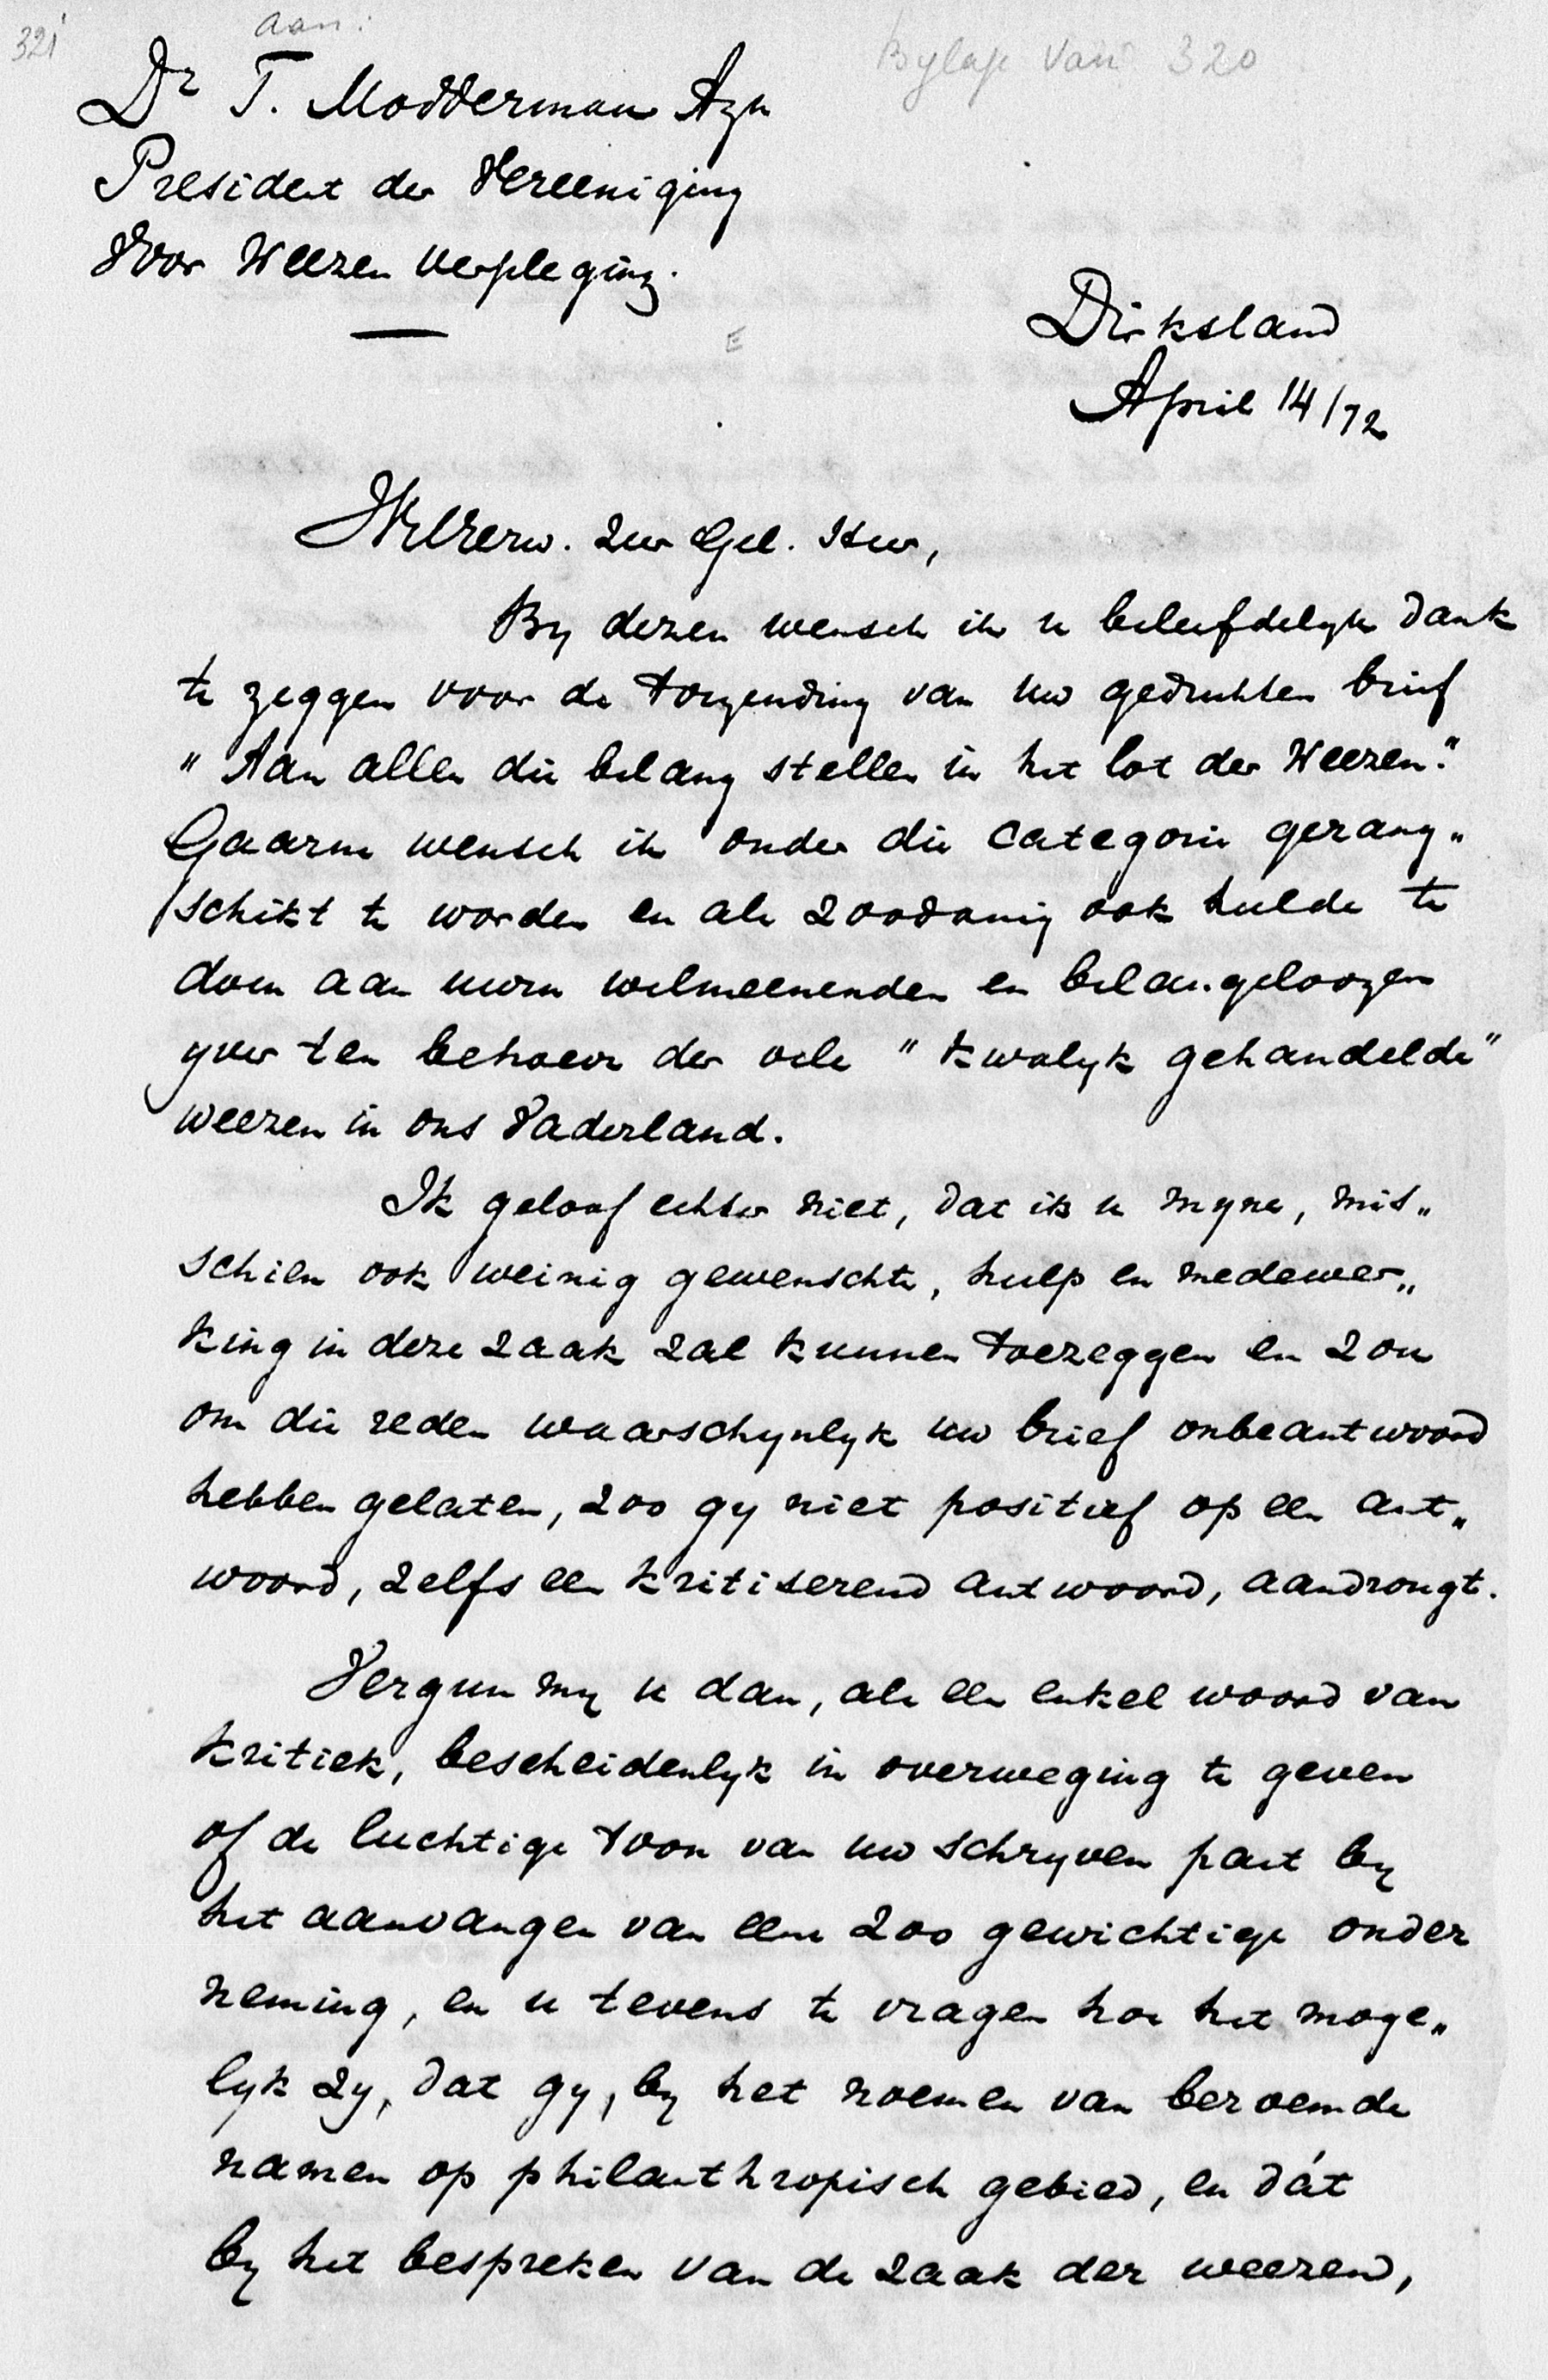 321
aan:
Bylage van 320
Dr T. Modderman Azn
President der Vereeniging
Voor Weezen verpleging.
Dirksland
April 14/72
WelEerw. Zeer Gel. Heer,
By dezen wensch ik u beleefdelyk dank
te zeggen voor de toezending van uw gedrukten brief
"Aan allen die belang stellen in het lot der Weezen."
Gaarne wensch ik onder die categorie gerang„
schikt te worden en als zoodanig ook hulde te
doen aan uwen welmeenenden en belangeloozen
yver ten behoeve der vele "kwalyk gehandelde"
weezen in ons Vaderland.
Ik geloof echter niet, dat ik u myne, mis„
schien ook weinig gewenschte, hulp en medewer„
king in deze zaak zal kunnen toezeggen en zou
om die reden waarschynlyk uw brief onbeantwoord
hebben gelaten, zoo gy niet positief op een ant„
woord, zelfs een kritiserend antwoord, aandrongt.
Vergun my u dan, als een enkel woord van
kritiek, bescheidenlyk in overweging te geven
of de luchtige toon van uw schryven past by
het aanvangen van eene zoo gewichtige onder
neming, en u tevens te vragen hoe het moge„
lyk zy, dat gy, by het noemen van beroemde
namen op philanthropisch gebied, en dát
by het bespreken van de zaak der weezen,